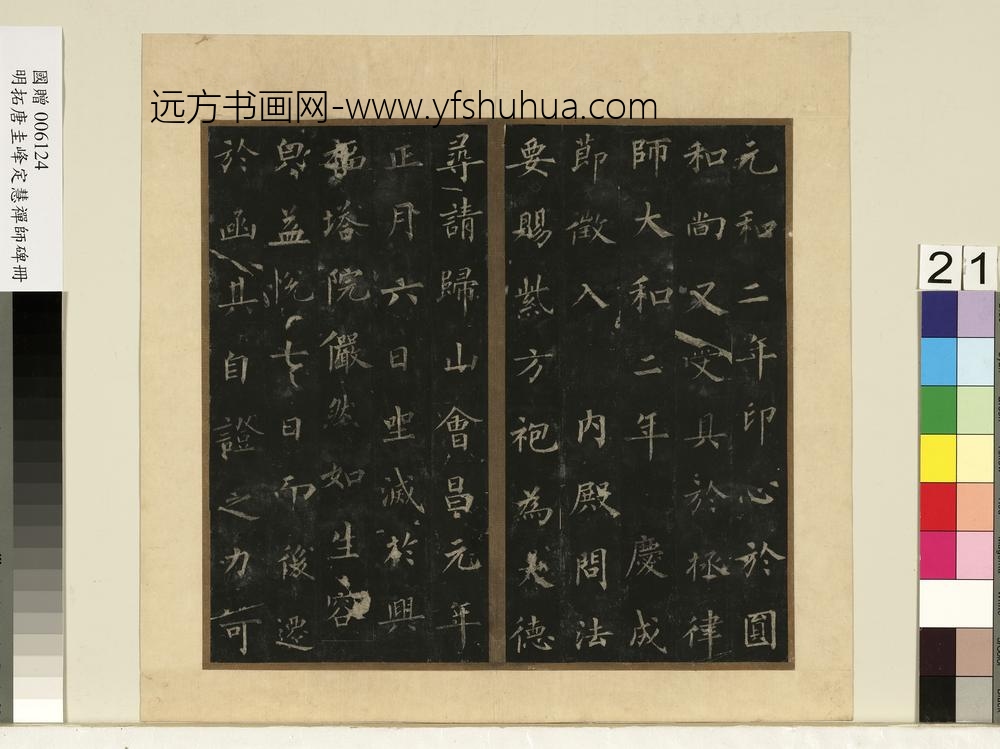 远方书画网-www.yfshuhua.com
國贈 006124
明拓唐圭峰定慧禪師碑冊
元和二年印心於圓
和尚又受具於拯律
師大和二年慶成
節徵入 內殿問法
要賜紫方袍為大德
尋請歸山會昌元年
正月六日坐滅於興
福塔院儼然如生容
皃益悅七日而後遷
於函其自證之力可
2 1